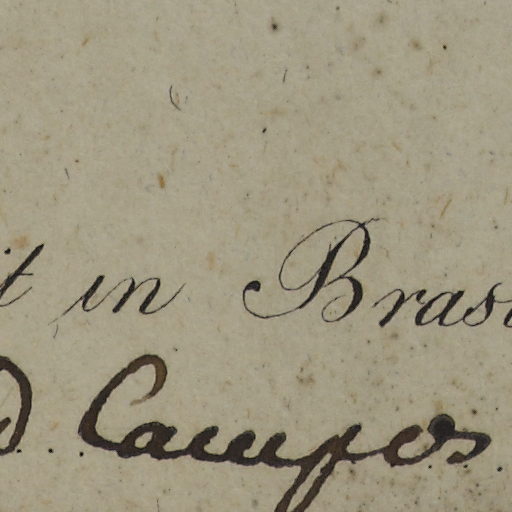 it in Brasi
d. Campos.